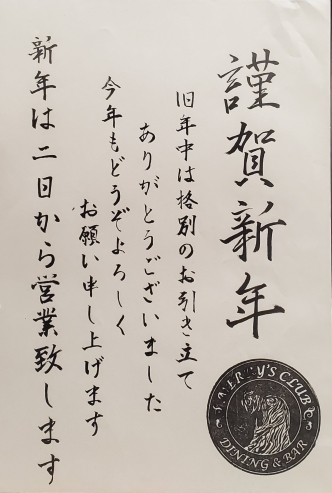 謹賀新年
旧年中は格別のお引き立て
ありがとうございました
今年もどうぞよろしく
お願い申し上げます
新年は二日から営業致します
CLUB
DINING & BAR